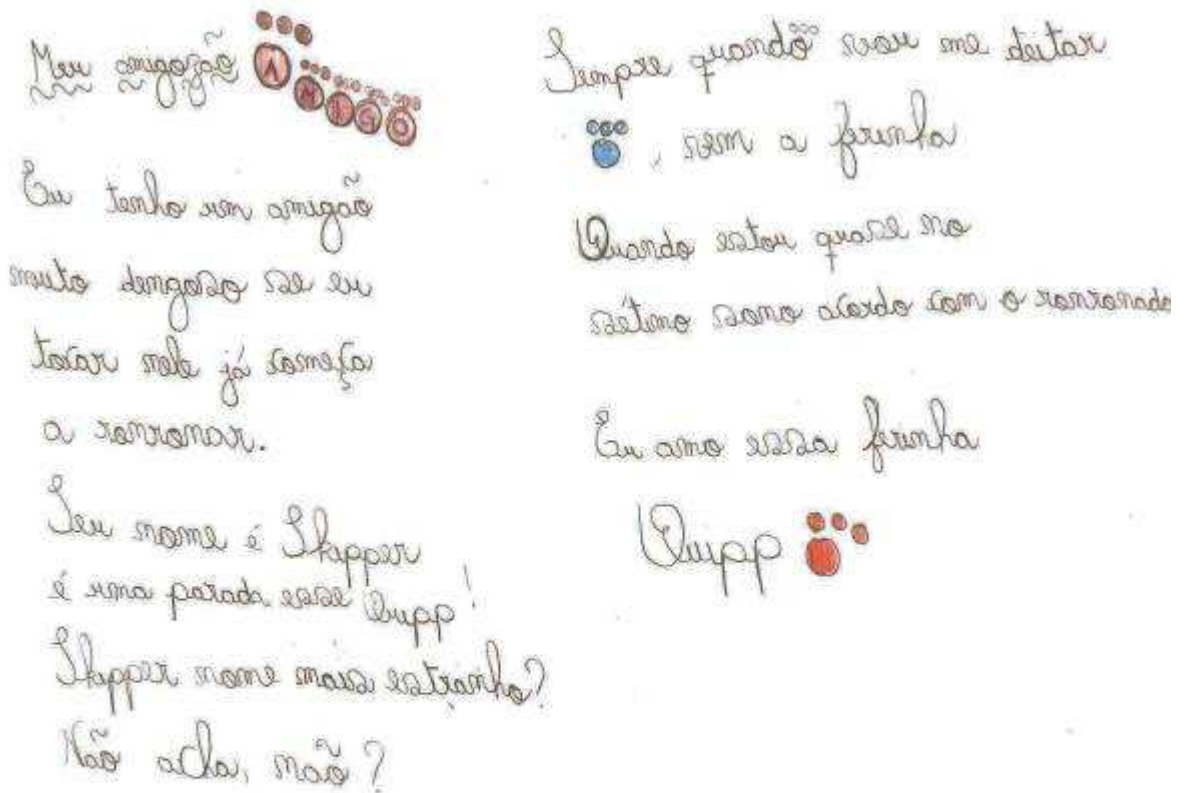 Meu amigozão AMIGO
Eu tenho um amigão
muito dengoso se eu
tocar nele já começa
a ronronar.
Seu nome é Skipper
é uma parada esse Quipp!
Skipper nome mais estranho?
Não acha, não?
Sempre quando vou me deitar
, vem a ferinha
Quando estou quase no
sétimo sono acordo com o ronronado
Eu amo essa ferinha
Quipp